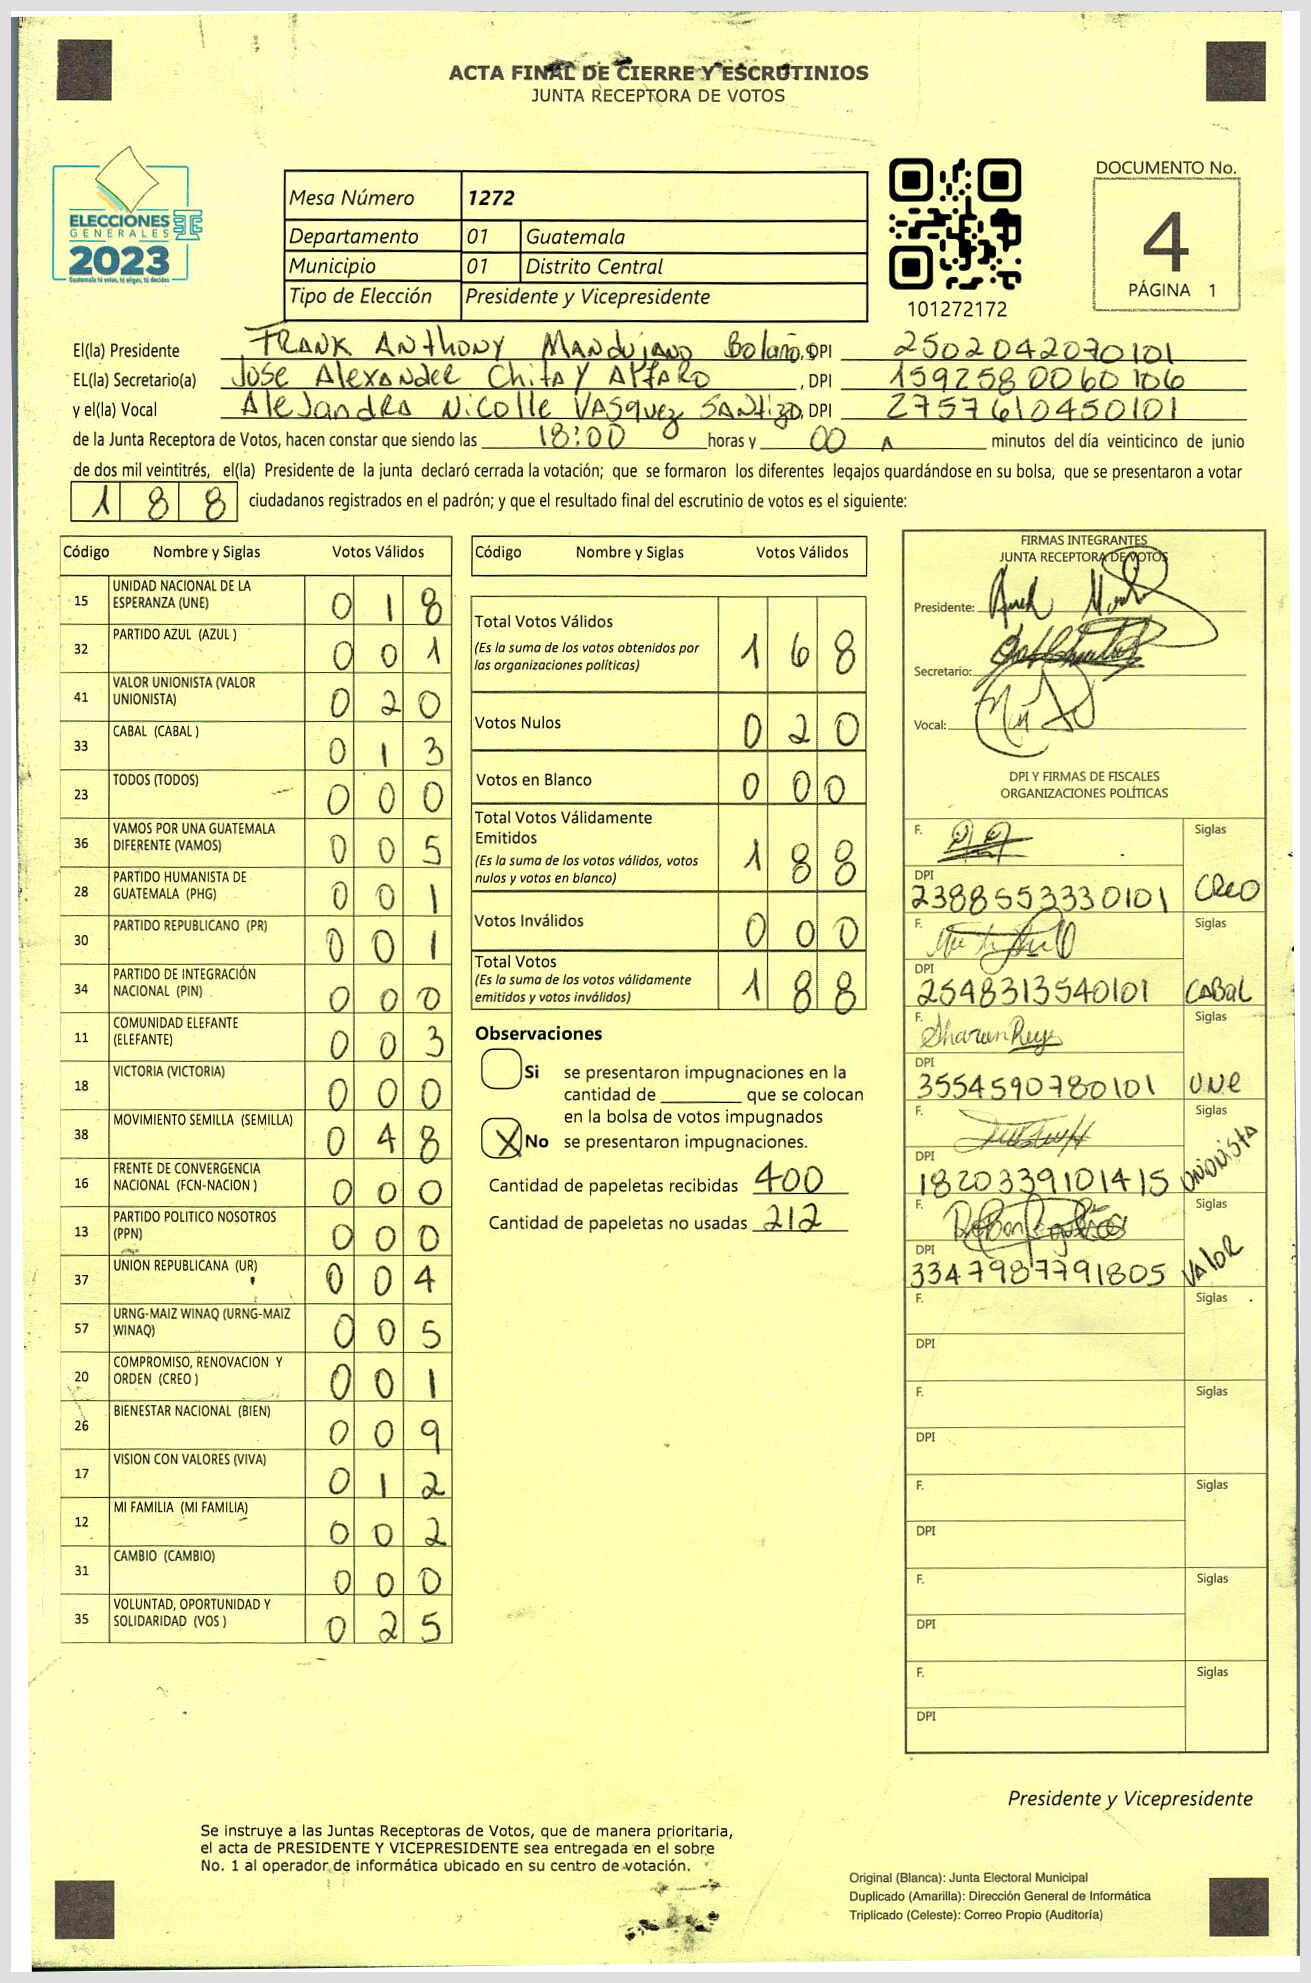 ACTA FINAL DE CIERRE Y ESCRUTINIOS
JUNTA RECEPTORA DE VOTOS
ELECCIONES
GENERALES
2023
Guatemala tú votas, tú eliges, tú decides
Mesa Número 1272
Departamento 01 Guatemala
Municipio 01 Distrito Central
Tipo de Elección Presidente y Vicepresidente
101272172
DOCUMENTO No.
4
PÁGINA 1
El(la) Presidente FRANK ANthONY MANDUJANO Bolaño, DPI 2502042070101
EL(la) Secretario(a) José Alexander Chitay Alfaro, DPI 1592580060106
y el(la) Vocal AleJandra Nicolle VASquez SANtizo, DPI 2757610450101
de la Junta Receptora de Votos, hacen constar que siendo las 18:00 horas y 00 minutos del día veinticinco de junio
de dos mil veintitrés, el(la) Presidente de la junta declaró cerrada la votación; que se formaron los diferentes legajos quardándose en su bolsa, que se presentaron a votar
188 ciudadanos registrados en el padrón; y que el resultado final del escrutinio de votos es el siguiente:
Código Nombre y Siglas Votos Válidos
15 UNIDAD NACIONAL DE LA ESPERANZA (UNE) 018
32 PARTIDO AZUL (AZUL ) 001
41 VALOR UNIONISTA (VALOR UNIONISTA) 020
33 CABAL (CABAL ) 013
23 TODOS (TODOS) 000
36 VAMOS POR UNA GUATEMALA DIFERENTE (VAMOS) 005
28 PARTIDO HUMANISTA DE GUATEMALA (PHG) 001
30 PARTIDO REPUBLICANO (PR) 001
34 PARTIDO DE INTEGRACIÓN NACIONAL (PIN) 000
11 COMUNIDAD ELEFANTE (ELEFANTE) 003
18 VICTORIA (VICTORIA) 000
38 MOVIMIENTO SEMILLA (SEMILLA) 048
16 FRENTE DE CONVERGENCIA NACIONAL (FCN-NACION ) 000
13 PARTIDO POLITICO NOSOTROS (PPN) 000
37 UNION REPUBLICANA (UR) 004
57 URNG-MAIZ WINAQ (URNG-MAIZ WINAQ) 005
20 COMPROMISO, RENOVACION Y ORDEN (CREO ) 001
26 BIENESTAR NACIONAL (BIEN) 009
17 VISION CON VALORES (VIVA) 012
12 MI FAMILIA (MI FAMILIA) 002
31 CAMBIO (CAMBIO) 000
35 VOLUNTAD, OPORTUNIDAD Y SOLIDARIDAD (VOS ) 025
Código Nombre y Siglas Votos Válidos
Total Votos Válidos 168
(Es la suma de los votos obtenidos por
las organizaciones políticas)
Votos Nulos 020
Votos en Blanco 000
Total Votos Válidamente
Emitidos 188
(Es la suma de los votos válidos, votos
nulos y votos en blanco)
Votos Inválidos 000
Total Votos 188
(Es la suma de los votos válidamente
emitidos y votos inválidos)
Observaciones
Si se presentaron impugnaciones en la
cantidad de ________ que se colocan
en la bolsa de votos impugnados
X No se presentaron impugnaciones.
Cantidad de papeletas recibidas 400
Cantidad de papeletas no usadas 212
FIRMAS INTEGRANTES
JUNTA RECEPTORA DE VOTOS
Presidente:
Secretario:
Vocal:
DPI Y FIRMAS DE FISCALES
ORGANIZACIONES POLÍTICAS
F. Siglas
DPI
2388553330101 CREO
F. Siglas
DPI
2548313540101 CABAL
F. Sharon Reyes Siglas
DPI
3554590780101 UNE
F. Siglas
DPI
1820339101415 UNIONISTA
F. Siglas
DPI
3347987791805 VALOR
F. Siglas
DPI
F. Siglas
DPI
F. Siglas
DPI
F. Siglas
DPI
F. Siglas
DPI
Presidente y Vicepresidente
Se instruye a las Juntas Receptoras de Votos, que de manera prioritaria,
el acta de PRESIDENTE Y VICEPRESIDENTE sea entregada en el sobre
No. 1 al operador de informática ubicado en su centro de votación.
Original (Blanca): Junta Electoral Municipal
Duplicado (Amarilla): Dirección General de Informática
Triplicado (Celeste): Correo Propio (Auditoría)